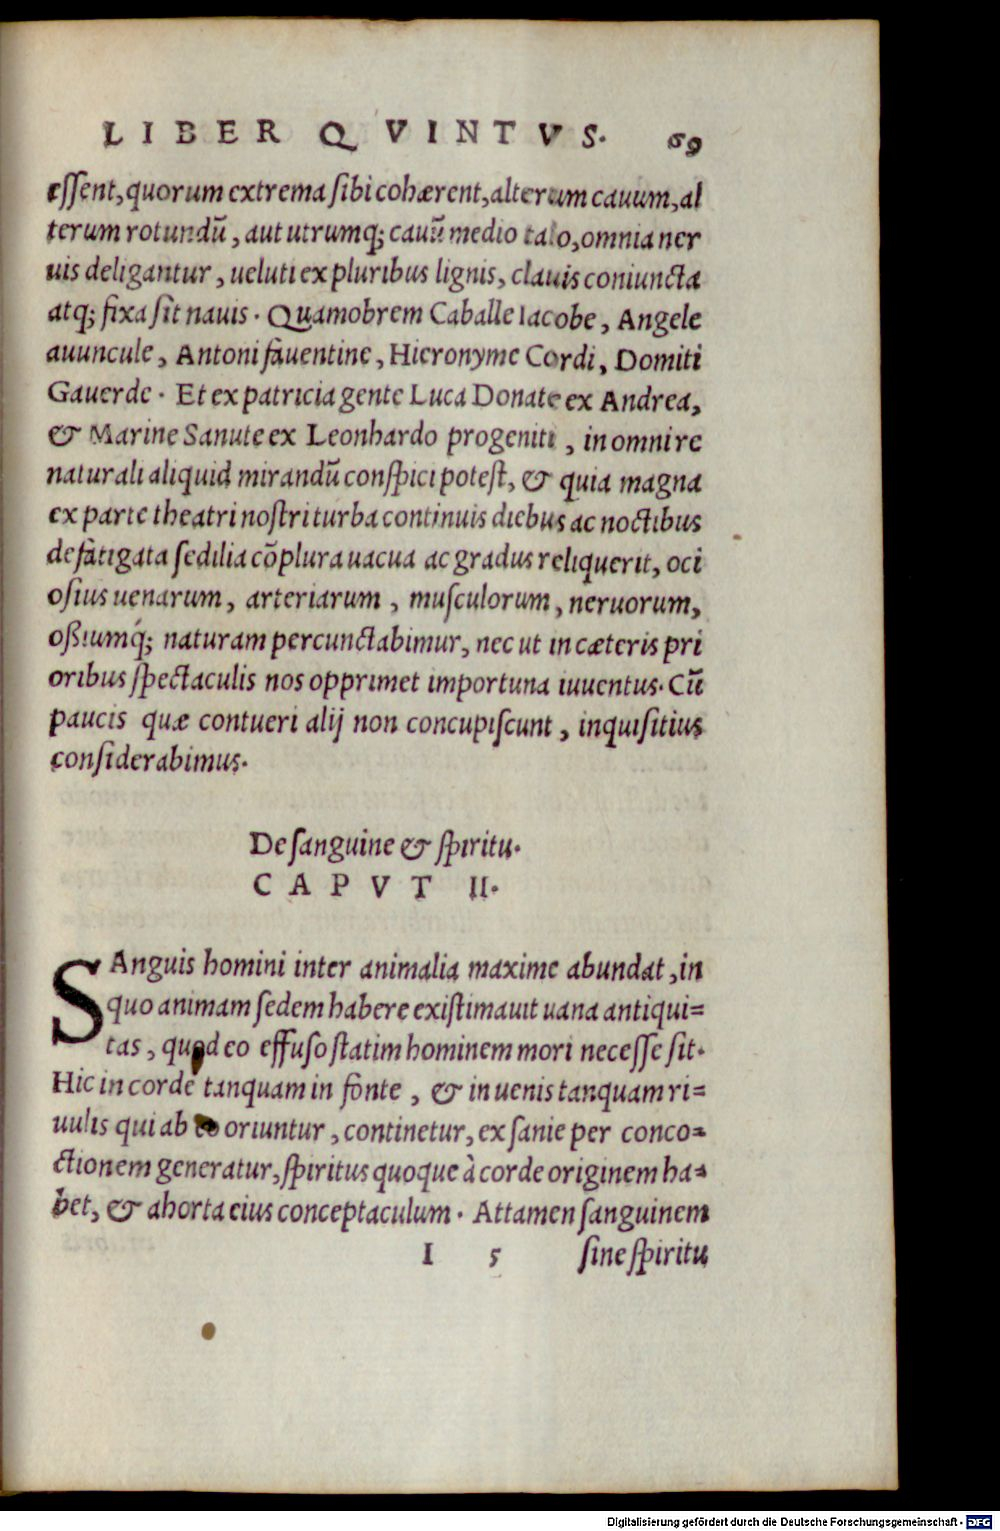 LIBER QVINTVS. 69
essent, quorum extrema sibi cohærent, alterum cauum, al
terum rotundū, aut utrumq; cauū medio talo, omnia ner
uis deligantur, ueluti ex pluribus lignis, clauis coniuncta
atq; fixa sit nauis. Quamobrem Caballe Iacobe, Angele
auuncule, Antoni fauentine, Hieronyme Cordi, Domiti
Gauerde. Et ex patricia gente Luca Donate ex Andrea,
& Marine Sanute ex Leonhardo progeniti, in omni re
naturali aliquid mirandū conspici potest, & quia magna
ex parte theatri nostri turba continuis diebus ac noctibus
defatigata sedilia cōplura uacua ac gradus reliquerit, oci
osius uenarum, arteriarum, musculorum, neruorum,
oßiumq́; naturam percunctabimur, nec ut in cæteris pri
oribus spectaculis nos opprimet importuna iuuentus. Cū
paucis quæ contueri alij non concupiscunt, inquisitius
considerabimus.
De sanguine & spiritu.
CAPVT II.
SAnguis homini inter animalia maxime abundat, in
quo animam sedem habere existimauit uana antiqui=
tas, quod eo effuso statim hominem mori necesse sit.
Hic in corde tanquam in fonte, & in uenis tanquam ri=
uulis qui ab eo oriuntur, continetur, ex sanie per conco=
ctionem generatur, spiritus quoque à corde originem ha=
bet, & ahorta eius conceptaculum. Attamen sanguinem
I 5 sine spiritu
Digitalisierung gefördert durch die Deutsche Forschungsgemeinschaft - DFG